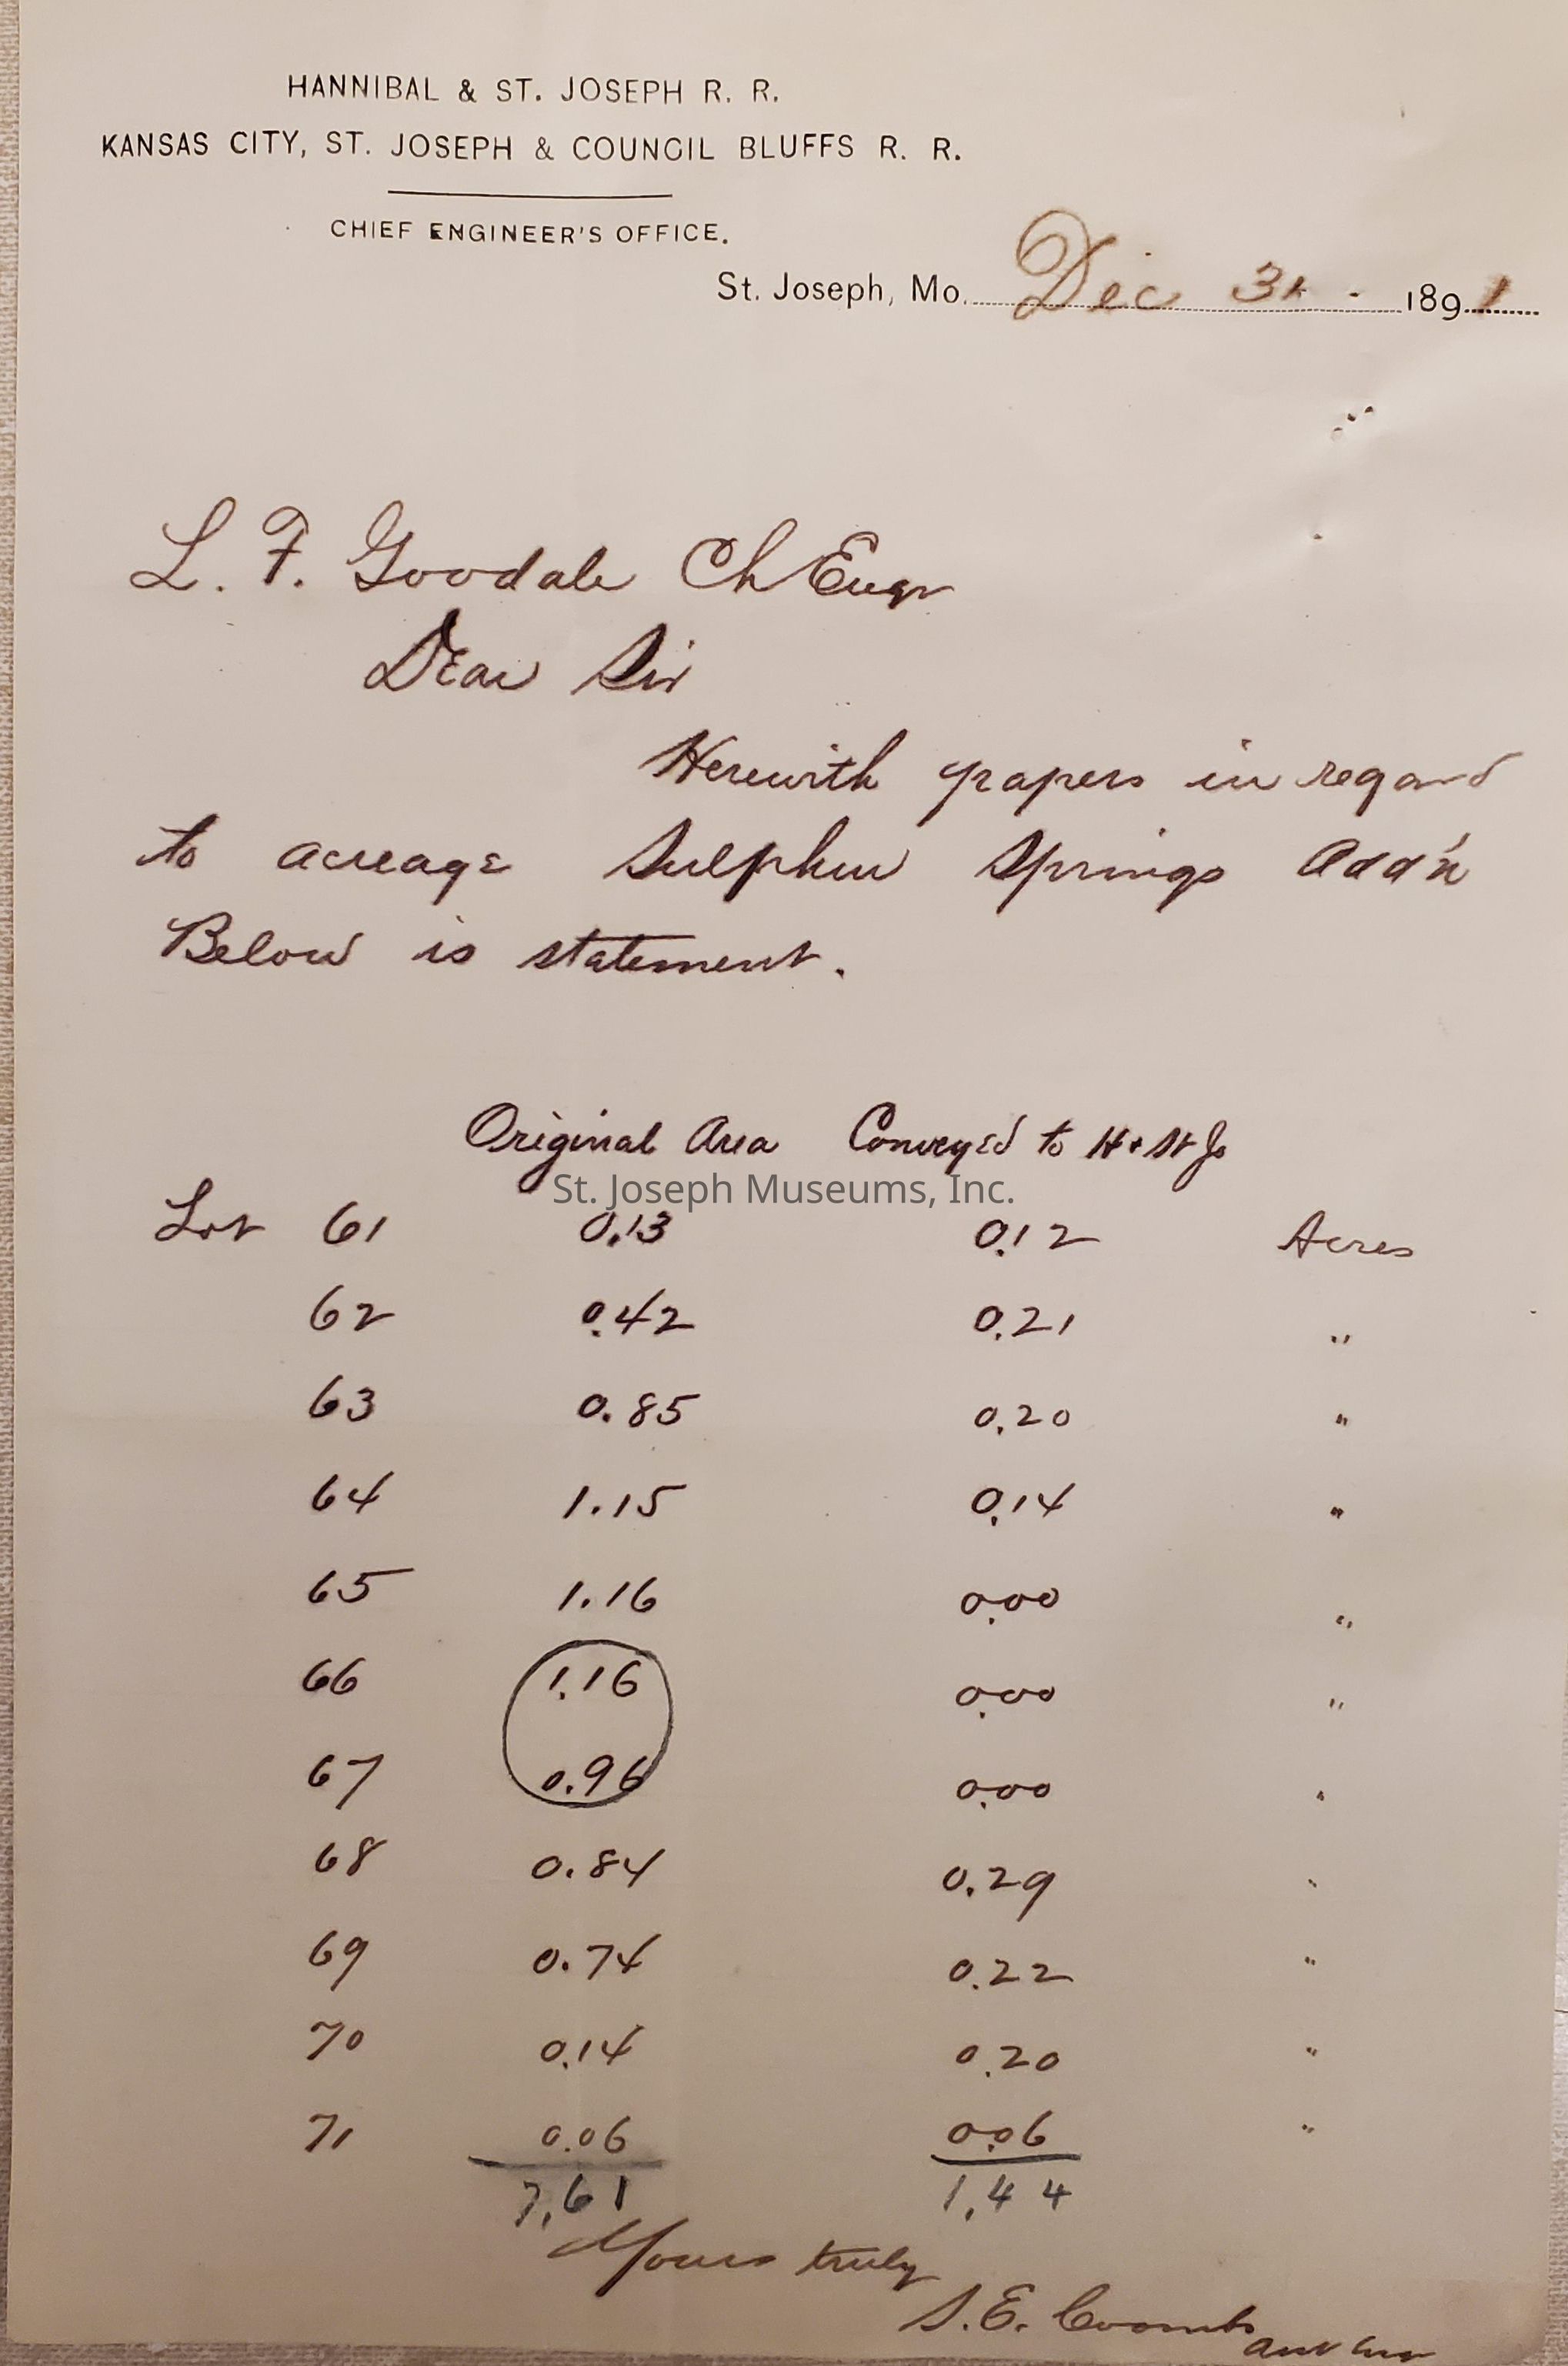 HANNIBAL & ST. JOSEPH R. R.
KANSAS CITY, ST. JOSEPH & COUNCIL BLUFFS R. R.
CHIEF ENGINEER'S OFFICE.
St. Joseph, Mo. Dec 31 - 1891
L. F. Goodale Ch Engr
Dear Sir
Herewith papers in regard
to acreage Sulphur Springs Add'n
Below is statement.
Original Area Conveyed to H & St Jo
St. Joseph Museums, Inc.
Lot 61 0.13 0.12 Acres
62 0.42 0.21 "
63 0.85 0.20 "
64 1.15 0.14 "
65 1.16 0.00 "
66 1.16 0.00 "
67 0.96 0.00 "
68 0.84 0.29 "
69 0.74 0.22 "
70 0.14 0.20 "
71 0.06 0.06 "
7.61 1.44
Yours truly
S. E. Coombs